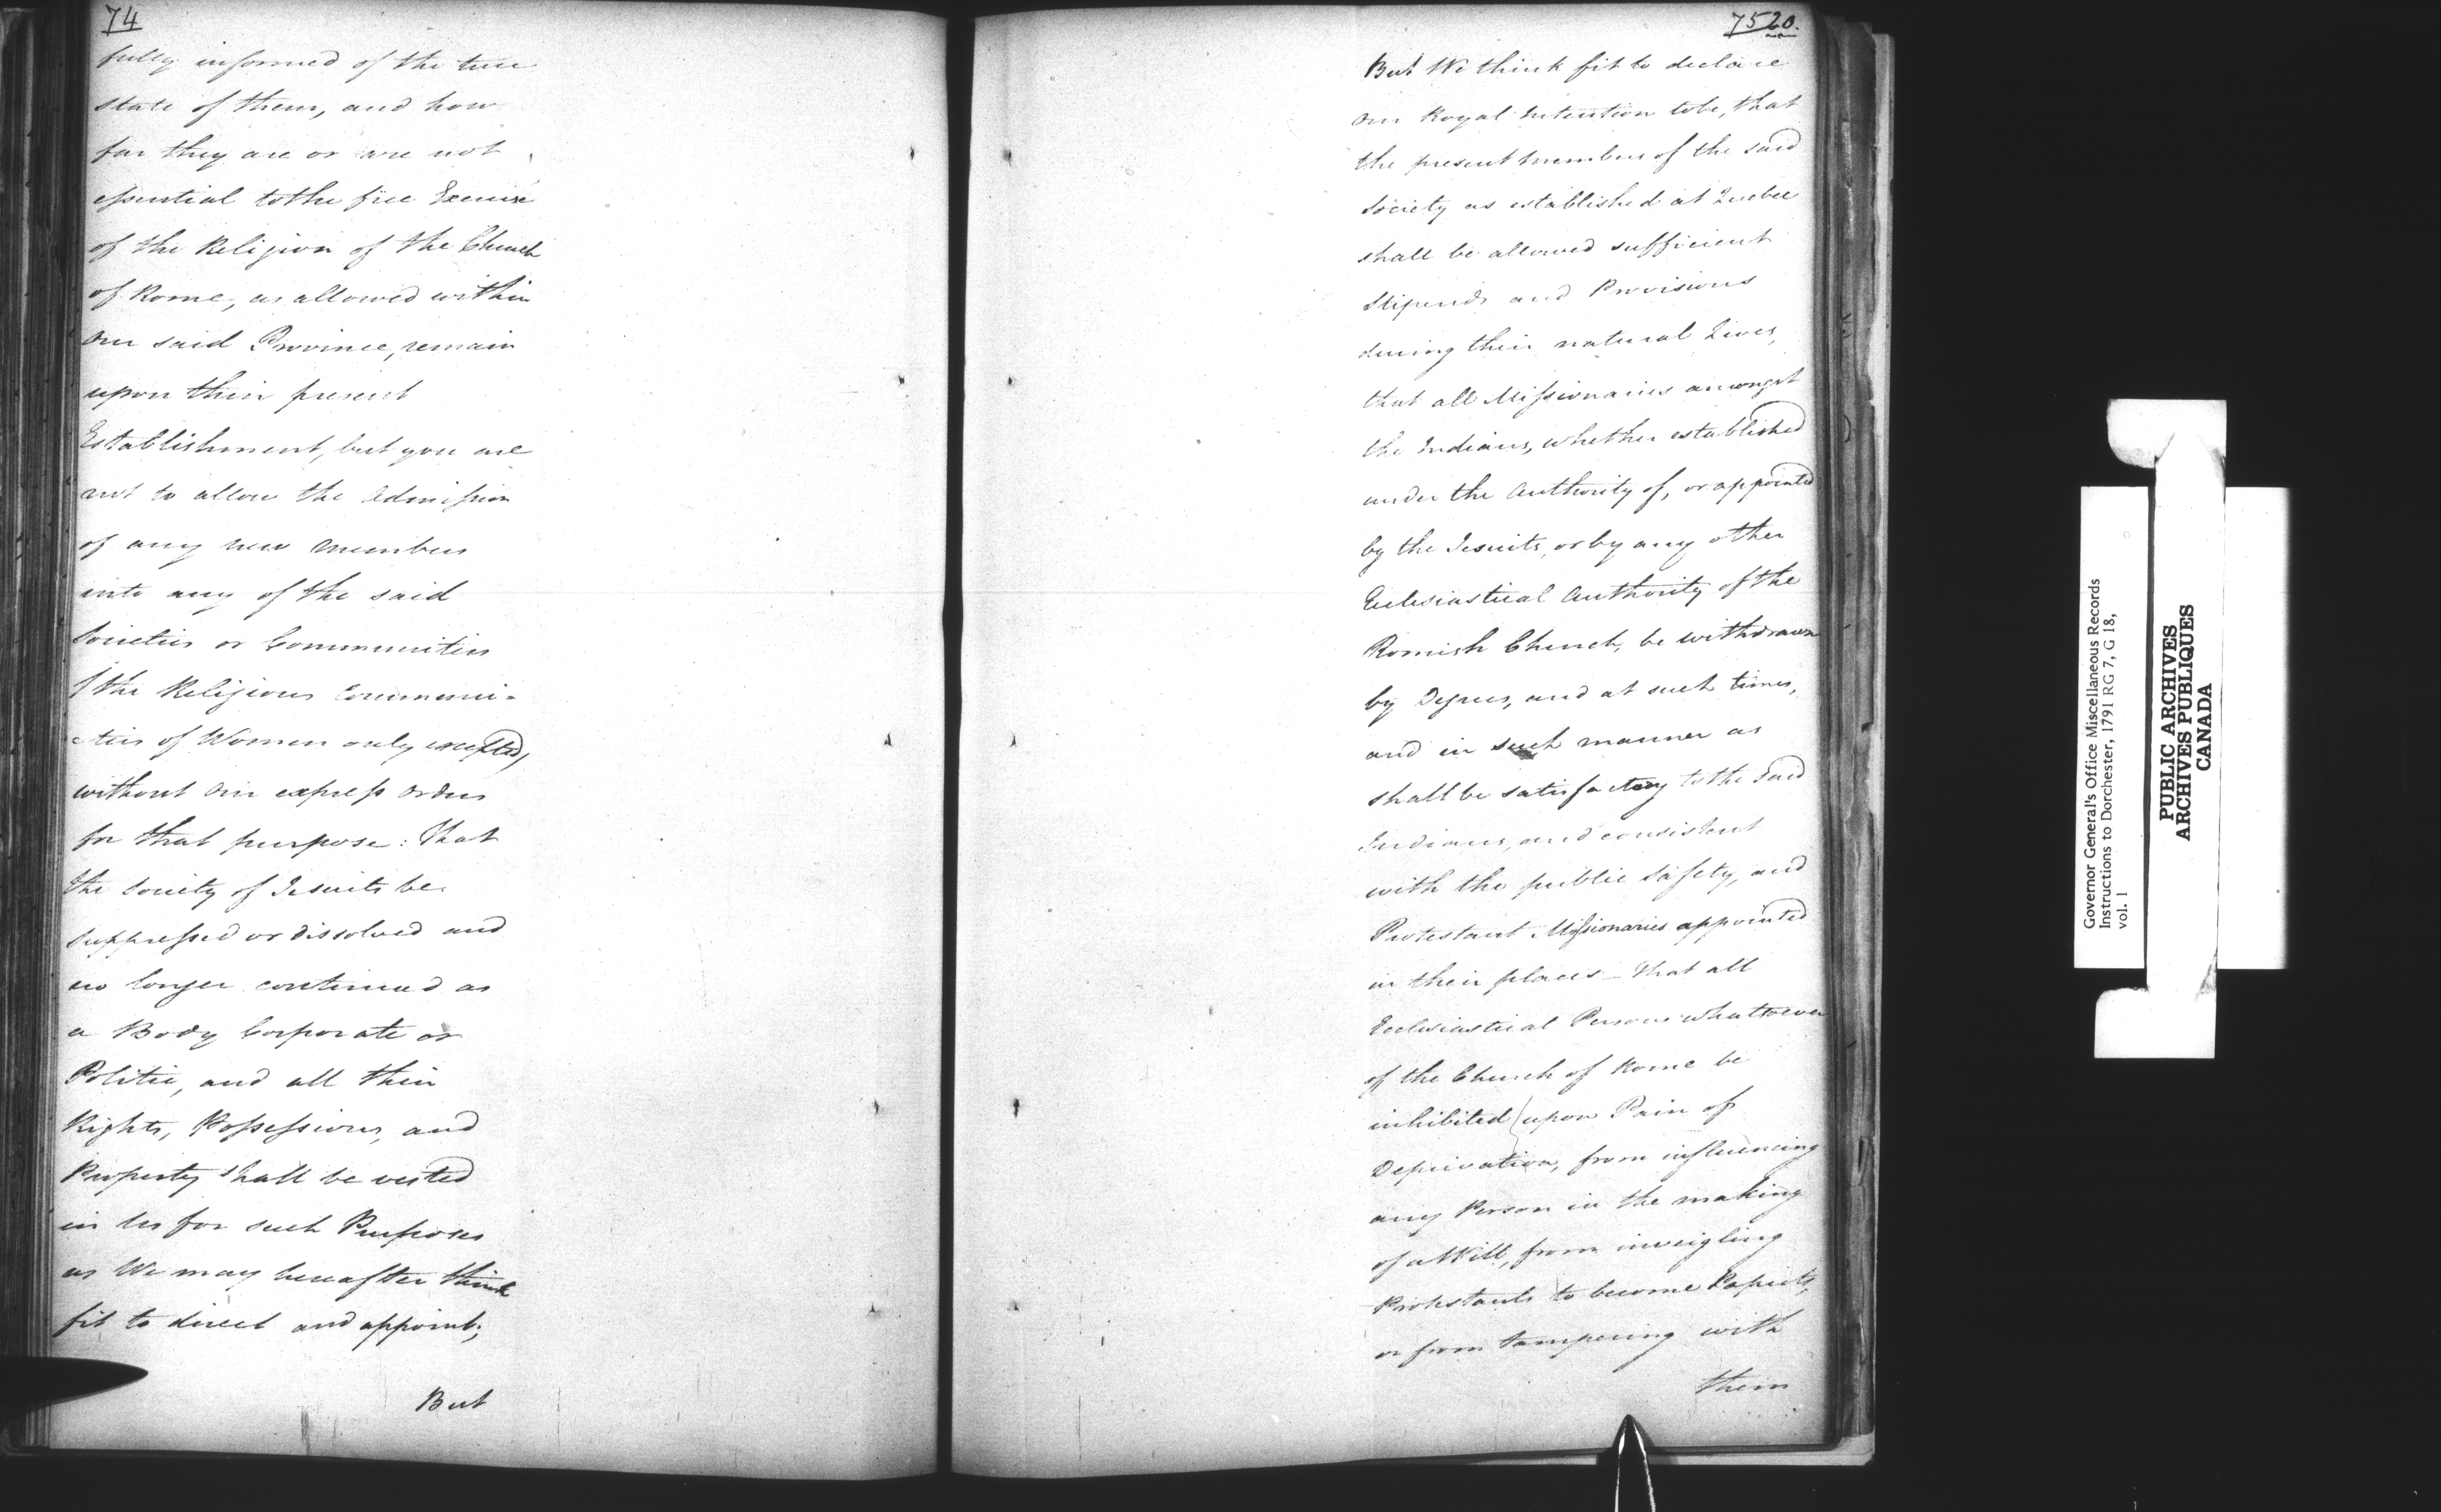 74
fully informed of the true
state of them, and how
far they are or are not
essential to the free Exercise
of the Religion of the Church
of Rome, as allowed within
our said Province, remain
upon their present
Establishment, but you are
not to allow the Admission
of any new members
into any of the said
Societies or Communities
(the Religious Communi=
=ties of Women only excepted)
without our express orders
for that purpose: That
the Society of Jesuits be
suppressed or dissolved and
no longer continued as
a Body Corporate or
Politic, and all their
Rights, Possessions, and
Property shall be vested
in Us for such Purposes
as We may hereafter think
fit to direct and appoint;
But
75 20.
But We think fit to declare
our Royal Intention to be, that
the present members of the said
Society as established at Quebec
shall be allowed sufficient
Stipends and Provisions
during their natural Lives,
that all Missionaries amongst
the Indians, whether established
under the Authority of, or appointed
by the Jesuits, or by any other
Ecclesiastical Authority of the
Romish Church, be withdrawn
by Degrees, and at such times,
and in such manner as
shall be satisfactory to the said
Indians, and consistent
with the public Safety, and
Protestant Missionaries appointed
in their places – That all
Ecclesiastical Persons whatsoever
of the Church of Rome be
inhibited (upon Pain of
Deprivation, from influencing
any Person in the making
of a Will, from inveigling
Protestants to become Papists,
or from tampering with
them
Governor General's Office Miscellaneous Records
Instructions to Dorchester, 1791 RG 7, G 18,
vol. 1
PUBLIC ARCHIVES
ARCHIVES PUBLIQUES
CANADA